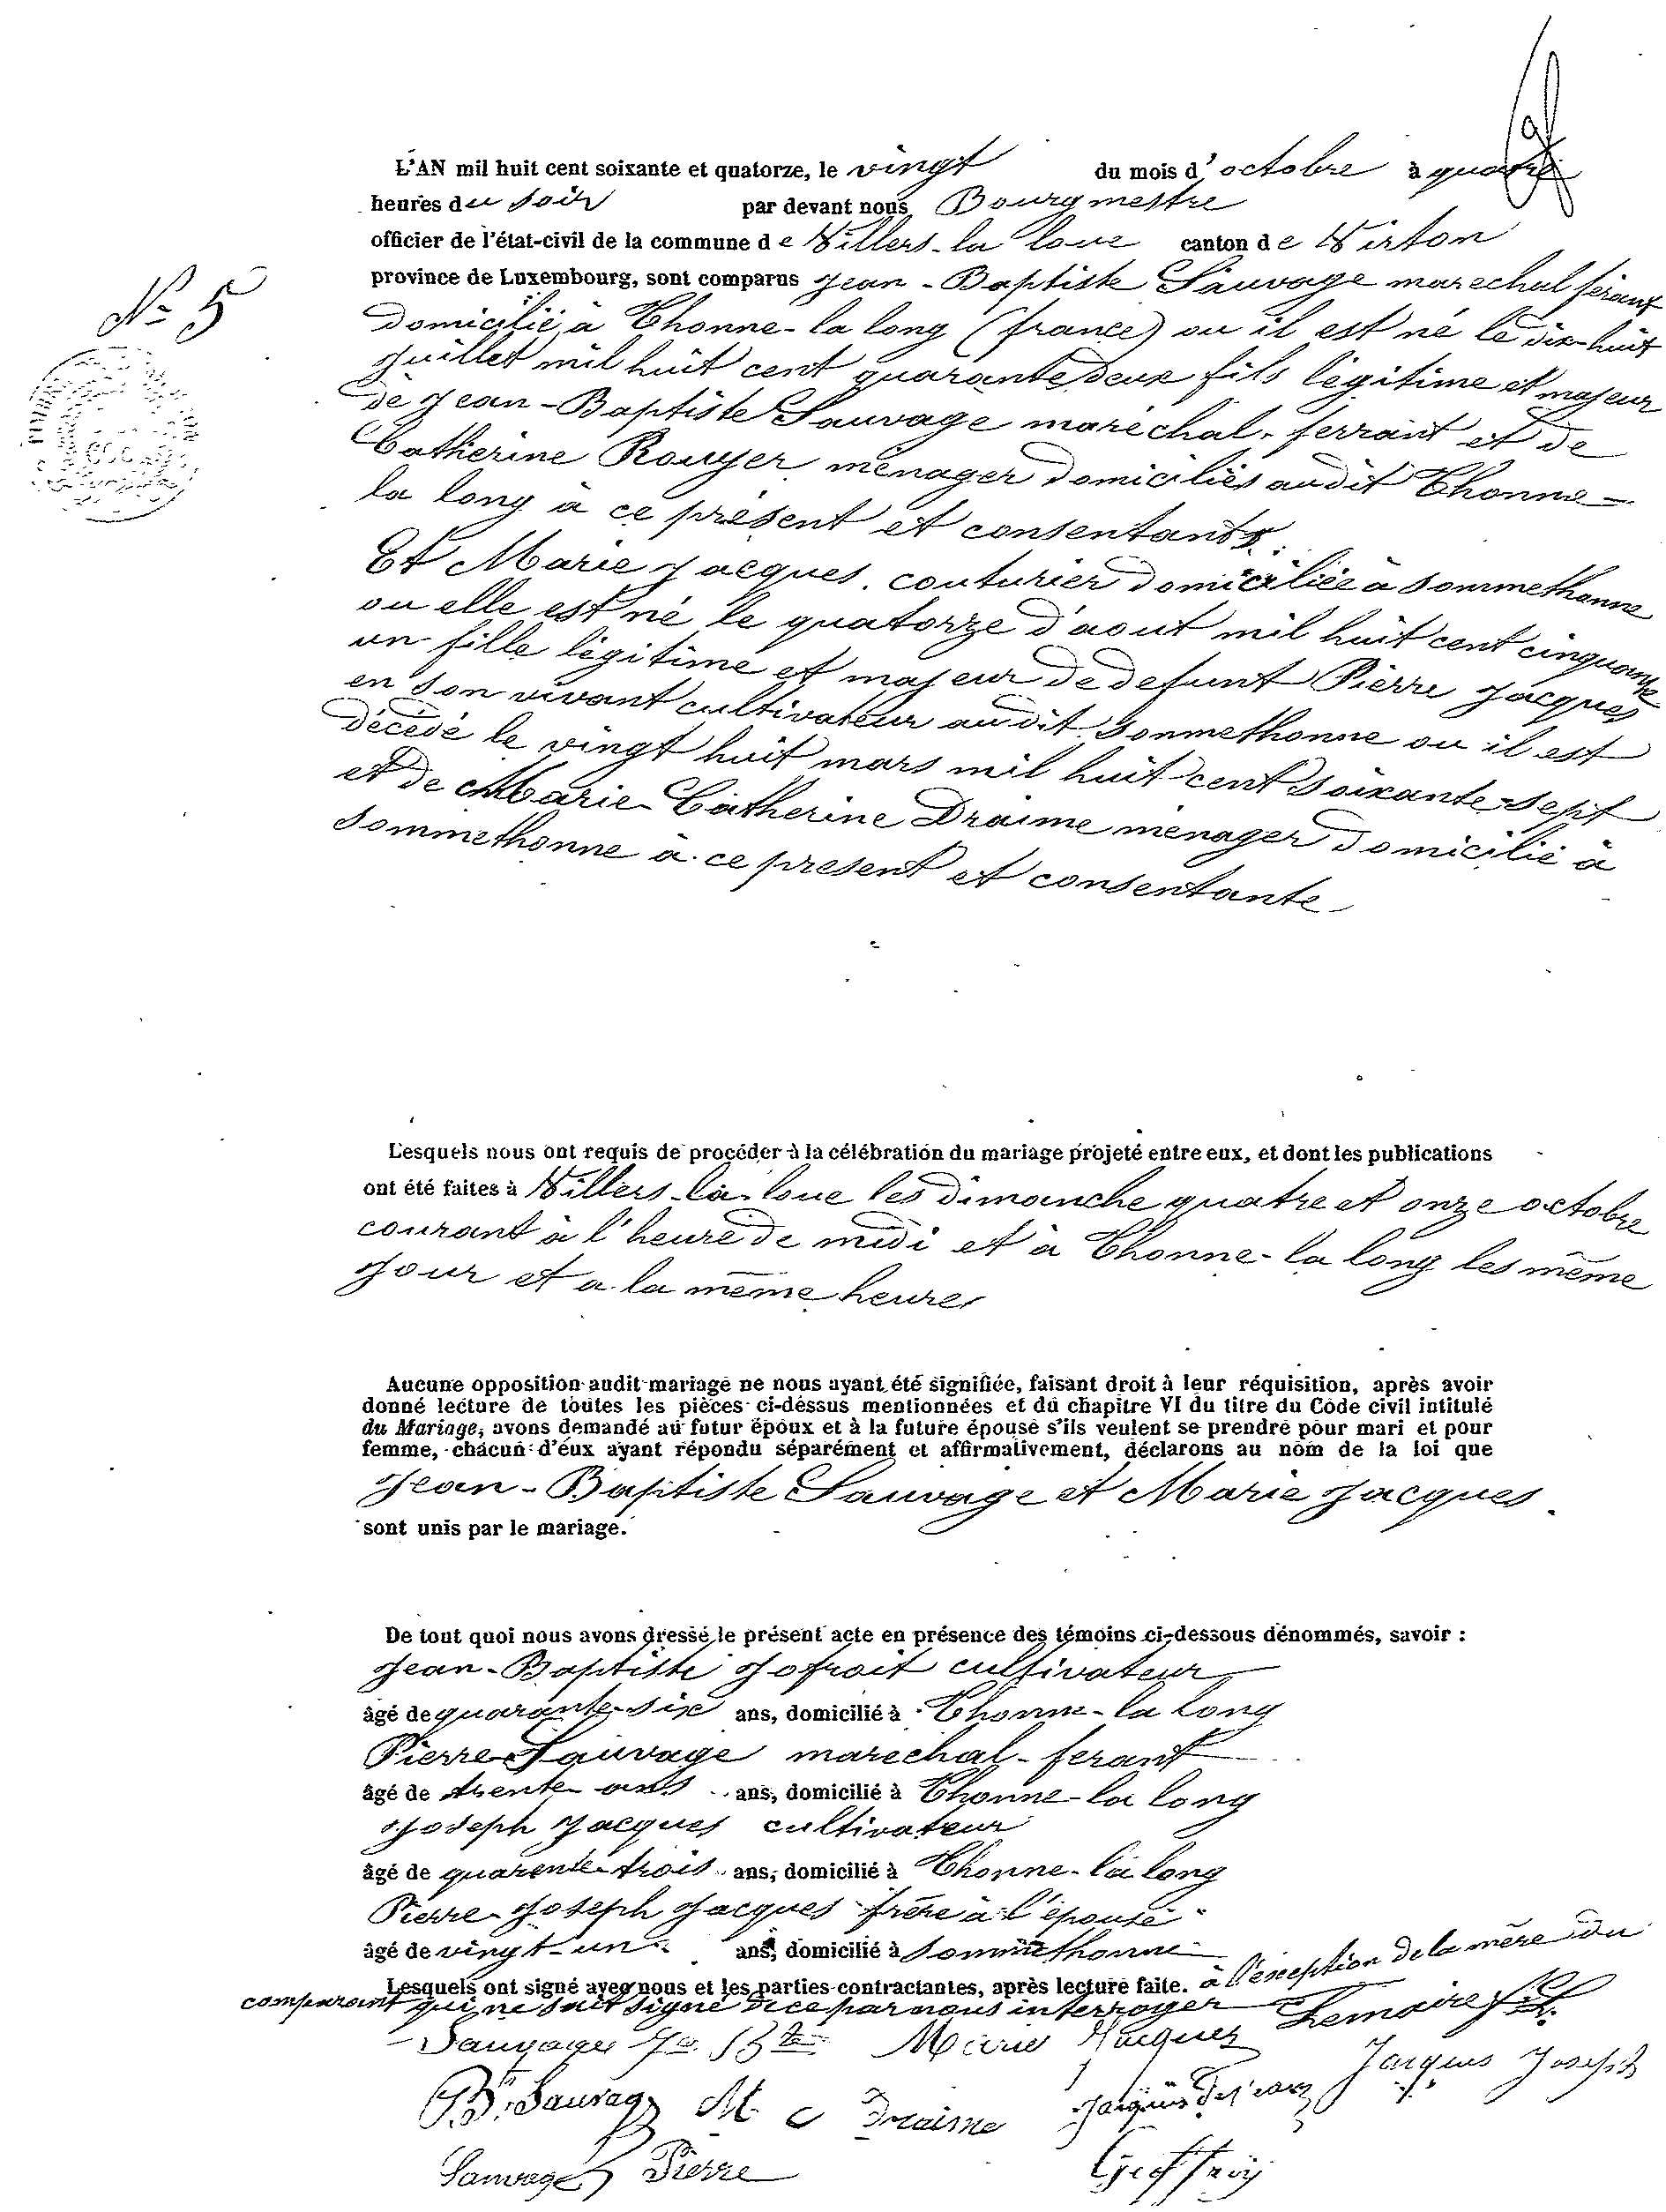 L'AN mil huit cent soixante et quatorze, le vingt du mois d'octobre à quatre
heures du soir par devant nous Bourgmestre
officier de l'état-civil de la commune de Villers-la loue canton de Virton
N° 5
province de Luxembourg, sont comparus Jean-Baptiste Sauvage marechal ferant
domicilié à Thonne-la long (france) ou il est né le dix-huit
juillet mil huit cent quarante deux fils légitime et majeur
de Jean-Baptiste Sauvage maréchal-ferrant et de
Catherine Rouyer ménager domiciliés audit Thonne-
la long à ce présent et consentants.
Et Marie Jacques couturier domiciliée à sommethonne
ou elle est né le quatorze d'aout mil huit cent cinquante
un fille légitime et majeur de defunt Pierre Jacques
en son vivant cultivateur audit sommethonne ou il est
décédé le vingt huit mars mil huit cent soixante sept
et de Marie-Catherine Draime ménager domicilié à
sommethonne à ce present et consentante
Lesquels nous ont requis de procéder à la célébration du mariage projeté entre eux, et dont les publications
ont été faites à Villers-la-loue les dimanche quatre et onze octobre
courant à l'heure de midi et à Thonne-la long les même
jour et a la même heure
Aucune opposition audit mariage ne nous ayant été signifiée, faisant droit à leur réquisition, après avoir
donné lecture de toutes les pièces ci-dessus mentionnées et du chapitre VI du titre du Code civil intitulé
du Mariage, avons demandé au futur époux et à la future épouse s'ils veulent se prendre pour mari et pour
femme, chacun d'eux ayant répondu séparément et affirmativement, déclarons au nom de la loi que
Jean-Baptiste Sauvage et Marie Jacques
sont unis par le mariage.
De tout quoi nous avons dressé le présent acte en présence des témoins ci-dessous dénommés, savoir :
Jean-Baptiste Jofroit cultivateur
âgé de quarante-six ans, domicilié à Thonne-la long
Pierre Sauvage marechal-ferant
âgé de trente ans ans, domicilié à Thonne-la long
Joseph Jacques cultivateur
âgé de quarente-trois ans, domicilié à Thonne-la long
Pierre-Joseph Jacques frére à l'épouse
âgé de vingt-un ans, domicilié à sommethonne
Lesquels ont signé avec nous et les parties contractantes, après lecture faite. à l'exeption de la mère du
comparant qui ne sait signé de ce par nous interroger Lemaire
Sauvage J B te Marie Jacques
JBt Sauvage M C Draime Jacques Joseph
Sauvage Pierre Geoffroy